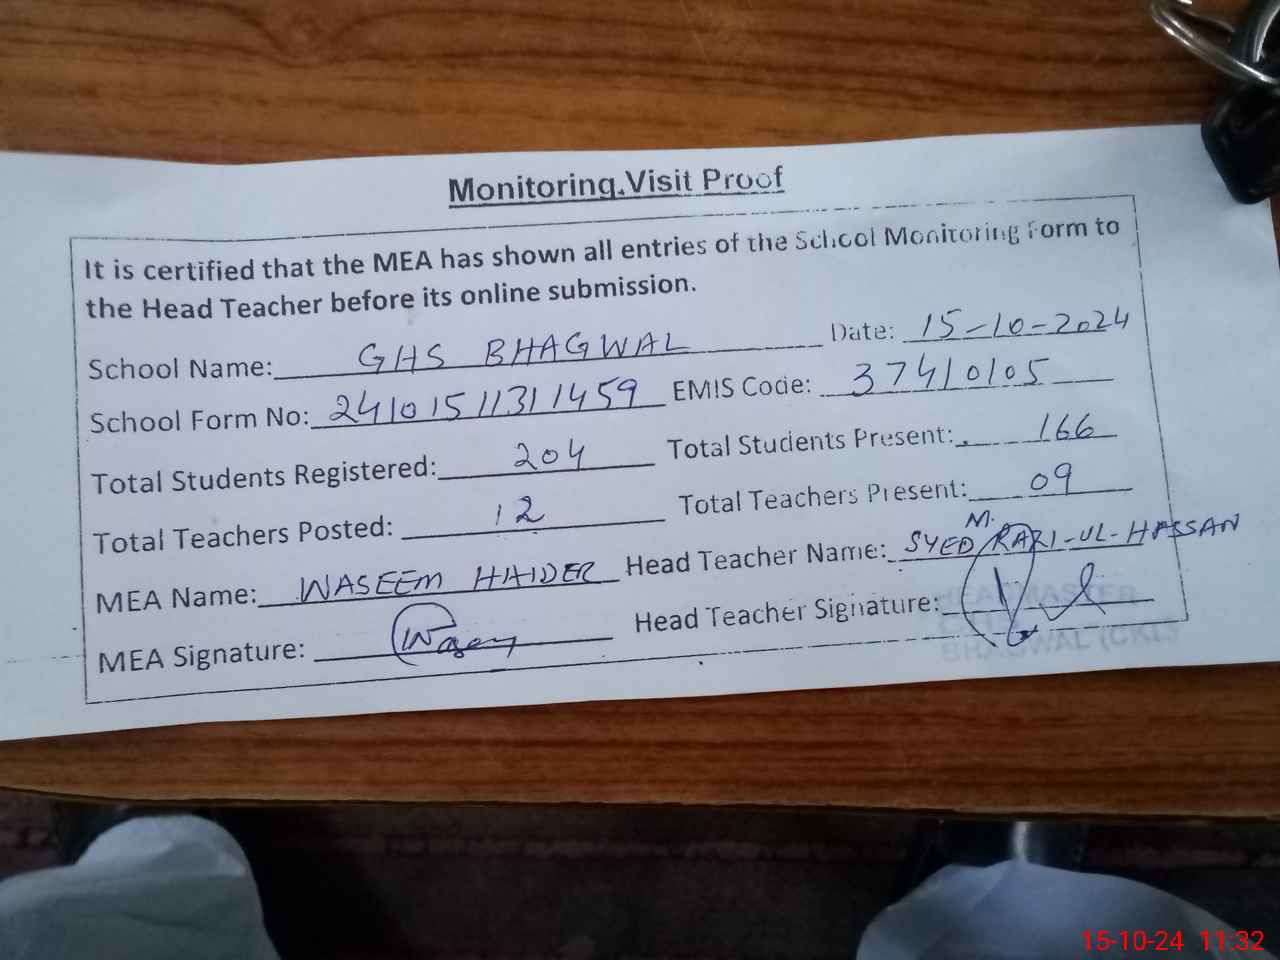 Monitoring Visit Proof
It is certified that the MEA has shown all entries of the School Monitoring Form to
the Head Teacher before its online submission.
School Name: GHS BHAGWAL Date: 15-10-2024
School Form No: 24101511311459 EMIS Code: 37410105
Total Students Registered: 204 Total Students Present: 166
Total Teachers Posted: 12 Total Teachers Present: 09
MEA Name: WASEEM HAIDER Head Teacher Name: SYED M. RAZI-UL-HASSAN
MEA Signature: Waseem Head Teacher Signature:
HEADMASTER
BHAGWAL (CKL)
15-10-24 11:32